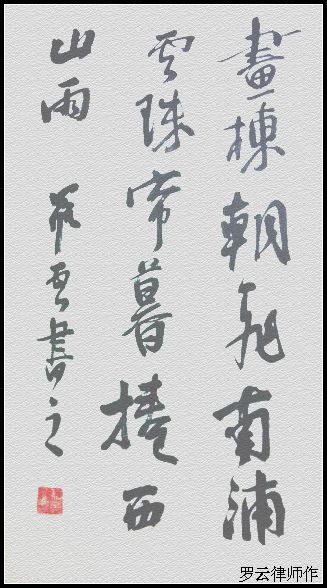 畫棟朝飛南浦
雲珠帘暮捲西
山雨 羅雲書之
罗云律师作